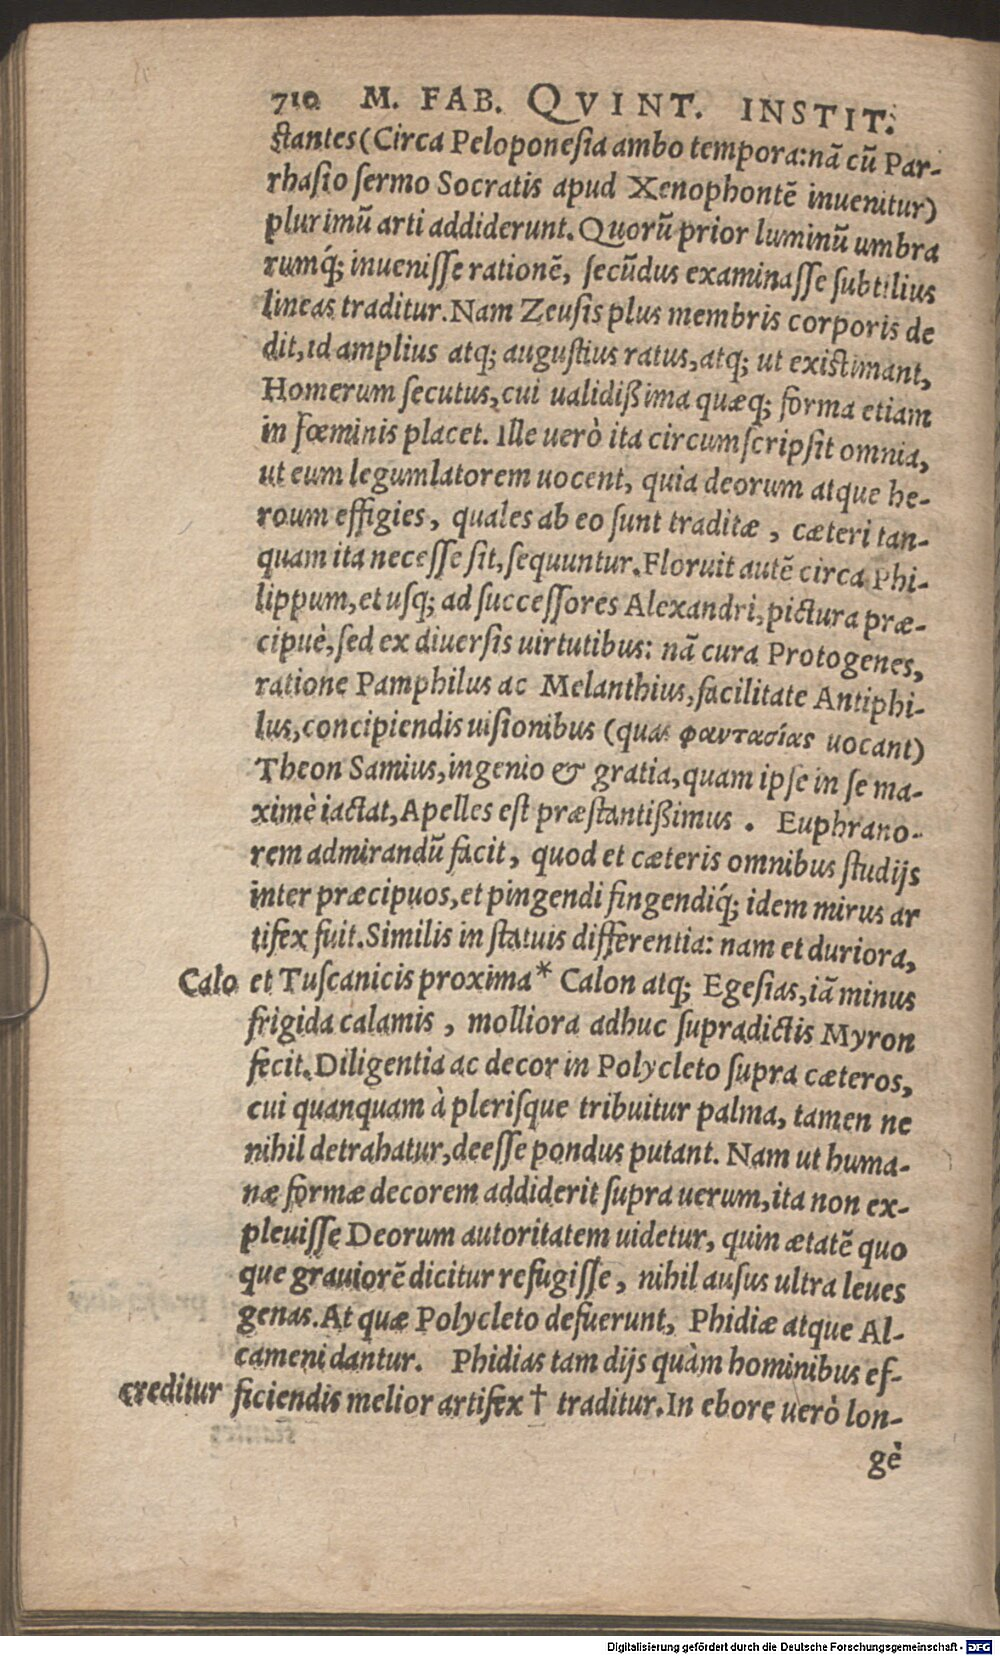 710 M. FAB. QVINT. INSTIT.
ſtantes (Circa Peloponeſia ambo tempora: nā cū Par-
rhaſio ſermo Socratis apud Xenophontē inuenitur)
plurimū arti addiderunt. Quorū prior luminū umbra
rumq́; inueniſſe rationē, ſecūdus examinaſſe ſubtilius
lineas traditur. Nam Zeuſis plus membris corporis de
dit, id amplius atq; auguſtius ratus, atq; ut exiſtimant,
Homerum ſecutus, cui ualidißima quæq; forma etiam
in fœminis placet. Ille uerò ita circumſcripſit omnia,
ut eum legumlatorem uocent, quia deorum atque he-
roum effigies, quales ab eo ſunt traditæ, cæteri tan-
quam ita neceſſe ſit, ſequuntur. Floruit autē circa Phi-
lippum, et uſq; ad ſucceſſores Alexandri, pictura præ-
cipuè, ſed ex diuerſis uirtutibus: nā cura Protogenes,
ratione Pamphilus ac Melanthius, facilitate Antiphi-
lus, concipiendis uiſionibus (quas φαντασίας uocant)
Theon Samius, ingenio & gratia, quam ipſe in ſe ma-
ximè iactat, Apelles eſt præſtantißimus. Euphrano-
rem admirandū facit, quod et cæteris omnibus ſtudijs
inter præcipuos, et pingendi fingendiq́; idem mirus ar
tifex fuit. Similis in ſtatuis differentia: nam et duriora,
Calo et Tuſcanicis proxima* Calon atq; Egeſias, iā minus
frigida calamis, molliora adhuc ſupradictis Myron
fecit. Diligentia ac decor in Polycleto ſupra cæteros,
cui quanquam à pleriſque tribuitur palma, tamen ne
nihil detrahatur, deeſſe pondus putant. Nam ut huma-
næ formæ decorem addiderit ſupra uerum, ita non ex-
pleuiſſe Deorum autoritatem uidetur, quin ætatē quo
que grauiorē dicitur refugiſſe, nihil auſus ultra leues
genas. At quæ Polycleto defuerunt, Phidiæ atque Al-
cameni dantur. Phidias tam dijs quàm hominibus ef-
creditur ficiendis melior artifex † traditur. In ebore uerò lon-
gè
Digitalisierung gefördert durch die Deutsche Forschungsgemeinschaft - DFG